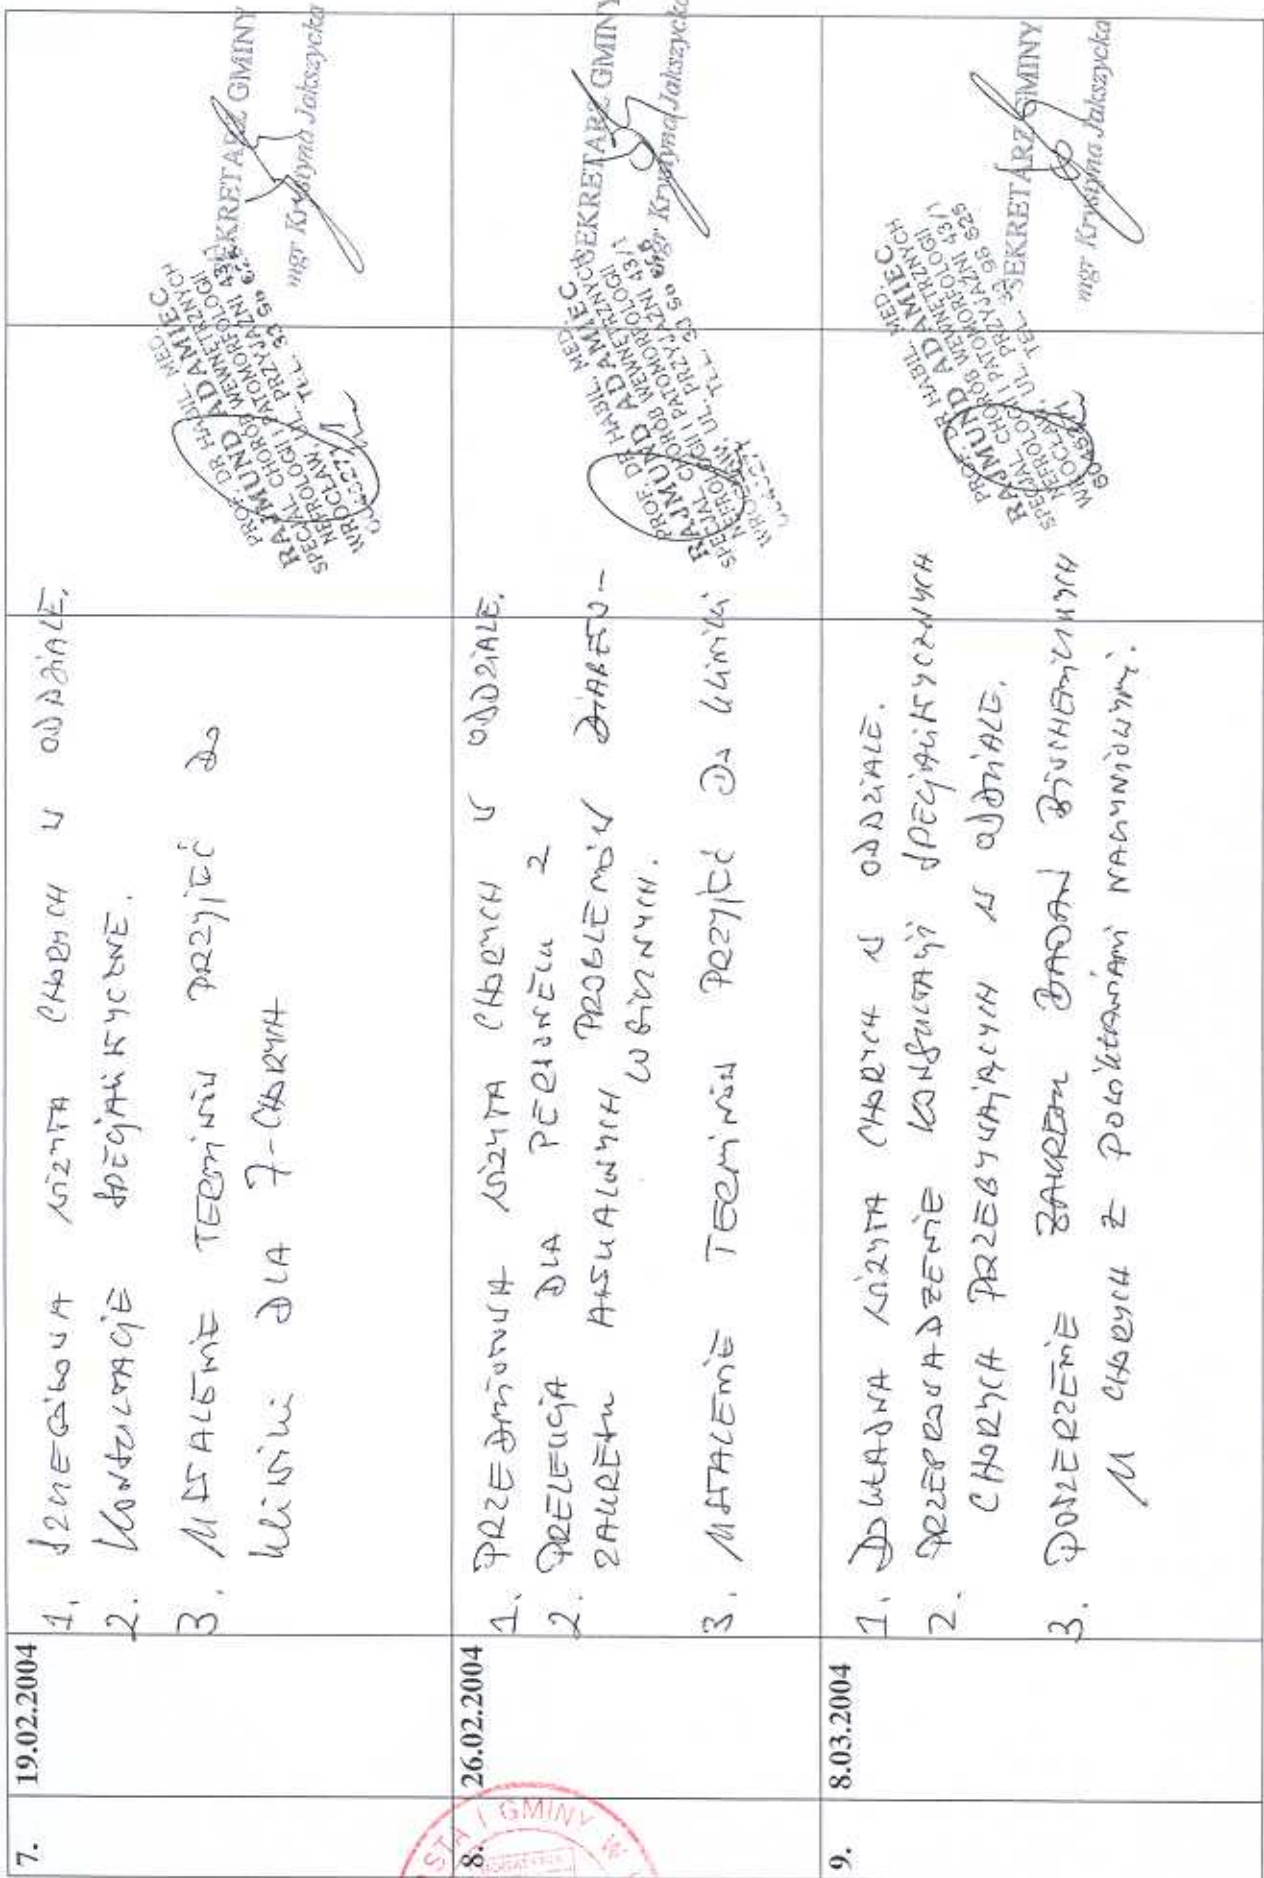 7.
19.02.2004
1. SZCZEGÓŁOWA WIZYTA CHORYCH W ODDZIALE.
2. KONSULTACJE SPECJALISTYCZNE.
3. USTALENIE TERMINÓW PRZYJĘĆ DO
KLINIKI DLA 7-CHORYCH
PROF. DR HABIL. MED.
RAJMUND ADAMIEC
SPECJAL. CHORÓB WEWNĘTRZNYCH
NEFROLOGII I PATOMORFOLOGII
WROCŁAW, UL. PRZYJAŹNI 43/1
SEKRETARZ GMINY
mgr Krystyna Jakszycka
8.
26.02.2004
1. PRZEDMIOTOWA WIZYTA CHORYCH W ODDZIALE.
2. PRELEKCJA DLA PERSONELU Z
ZAKRESU AKTUALNYCH PROBLEMÓW DIABETO-
LOGICZNYCH.
3. USTALENIE TERMINÓW PRZYJĘĆ DO KLINIKI
PROF. DR HABIL. MED.
RAJMUND ADAMIEC
SPECJAL. CHORÓB WEWNĘTRZNYCH
NEFROLOGII I PATOMORFOLOGII
WROCŁAW, UL. PRZYJAŹNI 43/1
SEKRETARZ GMINY
mgr Krystyna Jakszycka
STA I GMINY W
9.
8.03.2004
1. DOKŁADNA WIZYTA CHORYCH W ODDZIALE.
2. PRZEPROWADZENIE KONSULTACJI SPECJALISTYCZNYCH
CHORYCH PRZEBYWAJĄCYCH W ODDZIALE.
3. POSZERZENIE ZAKRESU BADAŃ BIOCHEMICZNYCH
U CHORYCH Z POWIKŁANIAMI NACZYNIOWYMI.
PROF. DR HABIL. MED.
RAJMUND ADAMIEC
SPECJAL. CHORÓB WEWNĘTRZNYCH
NEFROLOGII I PATOMORFOLOGII
WROCŁAW, UL. PRZYJAŹNI 43/1
SEKRETARZ GMINY
mgr Krystyna Jakszycka